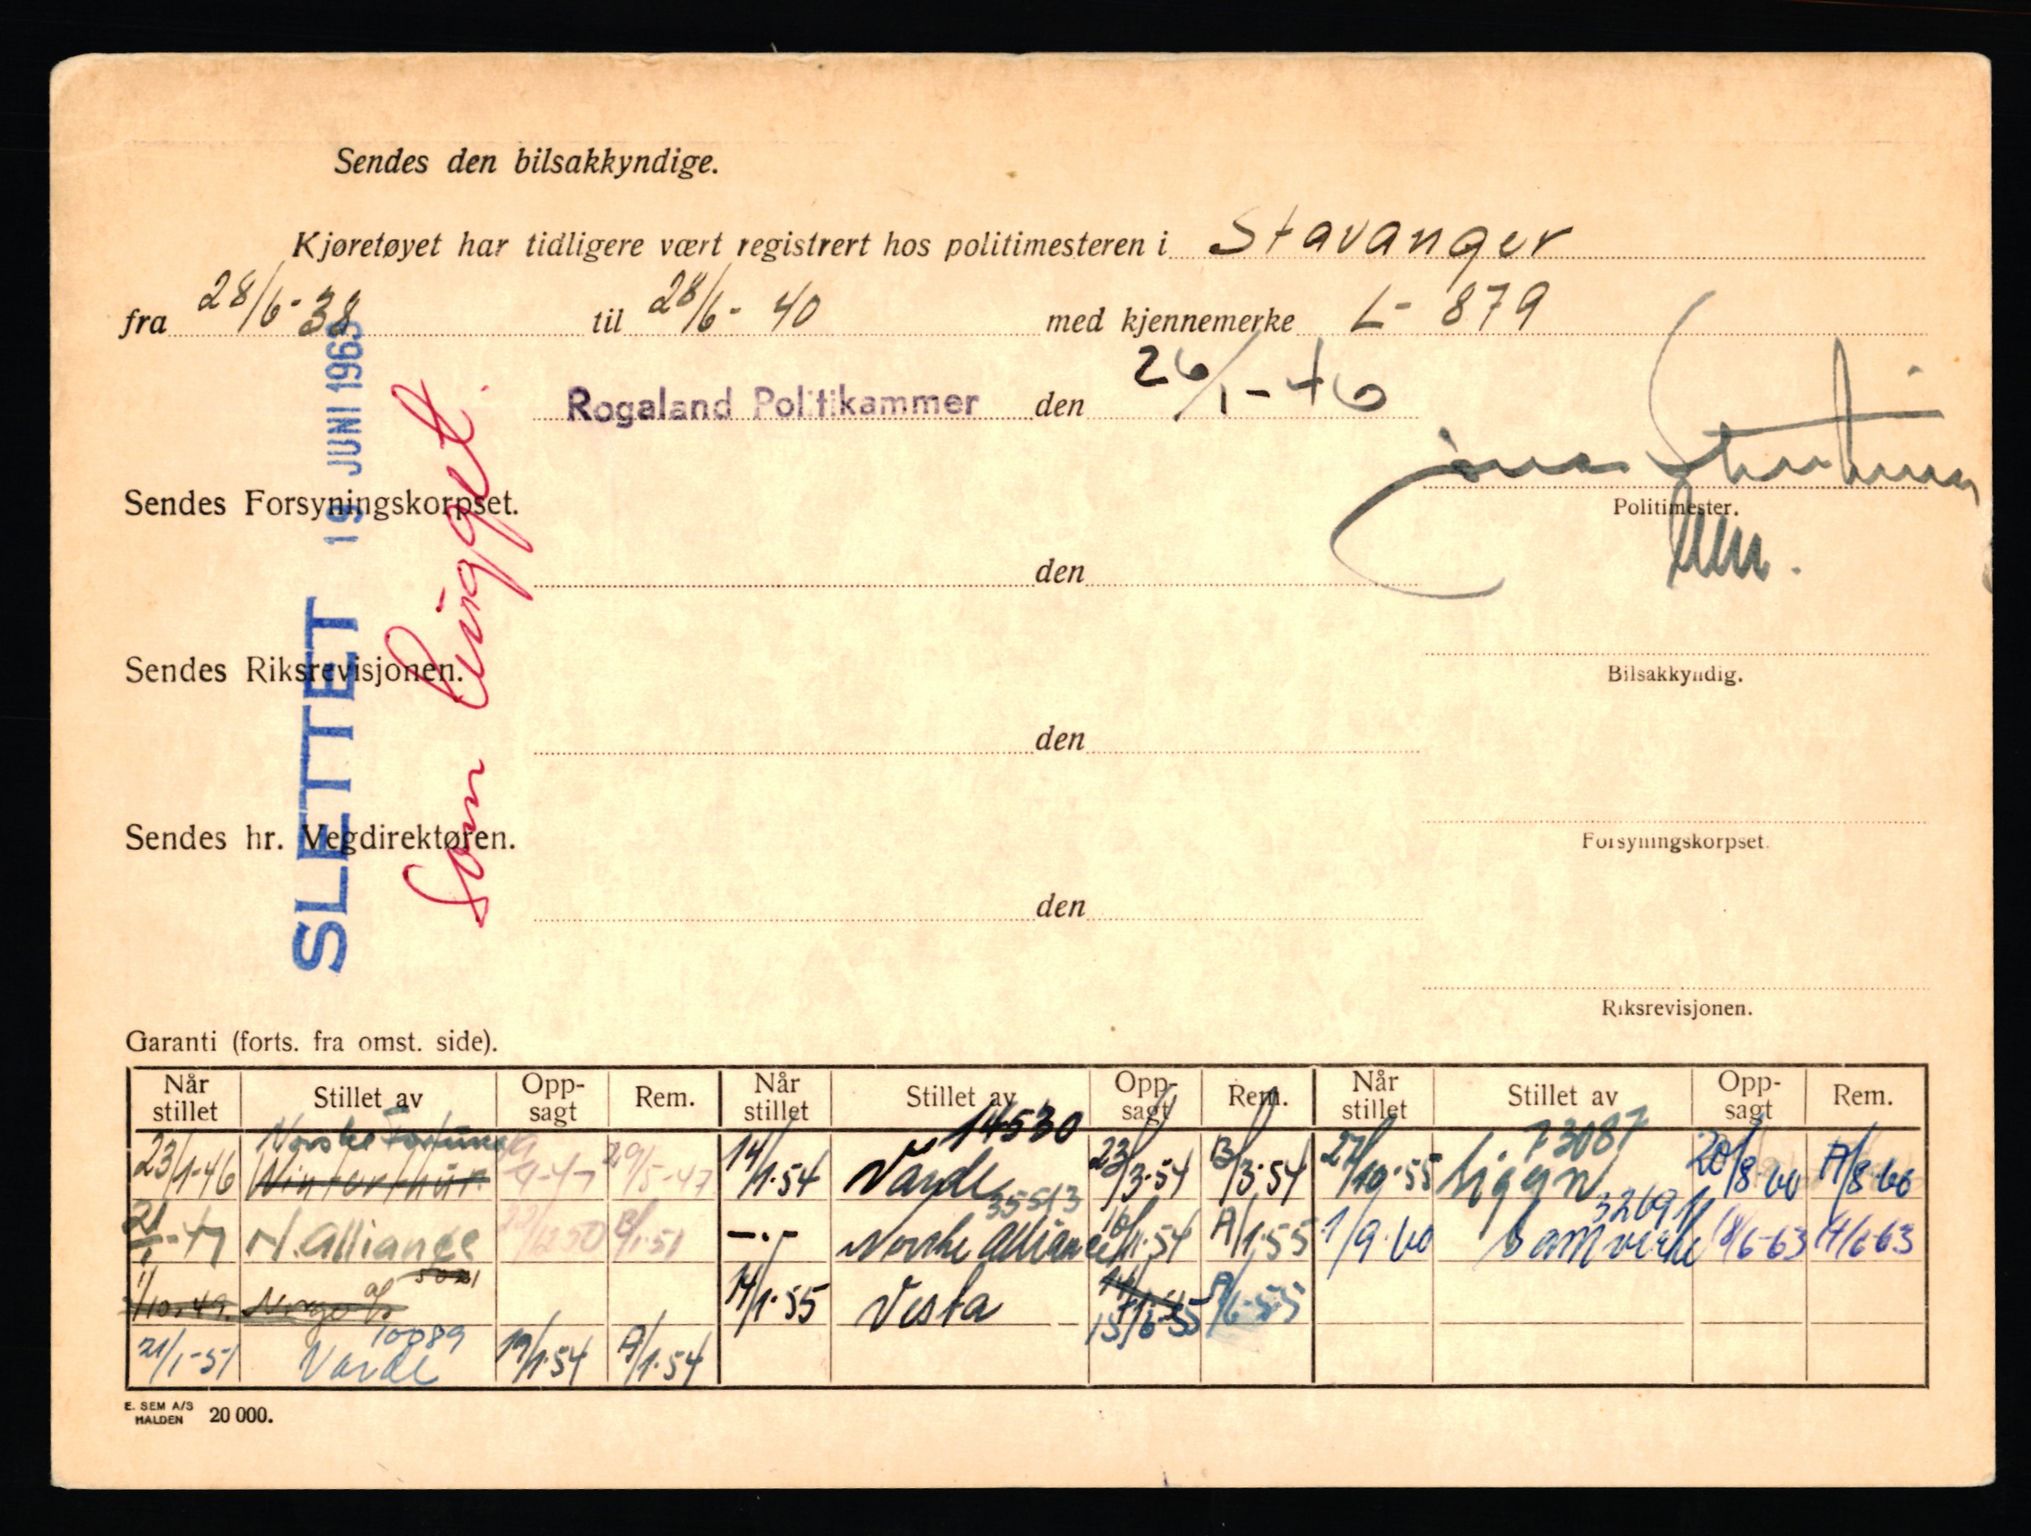 Sendes den bilsakkyndige.
Kjøretøyet har tidligere vært registrert hos politimesteren i Stavanger
fra 28/6-38 til 28/6-40 med kjennemerke L-879
Rogaland Politikammer den 26/1-46
Politimester.
Sendes Forsyningskorpset.
den
Bilsakkyndig.
Sendes Riksrevisjonen.
den
Forsyningskorpset.
Sendes hr. Vegdirektøren.
den
Riksrevisjonen.
SLETTET 19 JUNI 1963
Som
Garanti (forts. fra omst. side).
Når stillet Stillet av Oppsagt Rem. Når stillet Stillet av Oppsagt Rem. Når stillet Stillet av Oppsagt Rem.
23/1-46 Norske Fortuna Winterthur 29/5-47 14/1-54 Varde 14530 23/3-54 B/3-54 27/10-55 Sigyn 73087 20/8-60 A/8-60
21/1-47 N. Alliance 22/12 50 B/1-51 -.- Norske Alliance 35513 1-54 A/1-55 1/9-60 Samvirke 18/6-63 A/6-63
1/10-49 Norge a/s 14/1-55 Vesta 15/6-55 A/6-55
21/1-51 Varde 10089 19/1-54 A/1-54
E. SEM A/S
HALDEN 20 000.